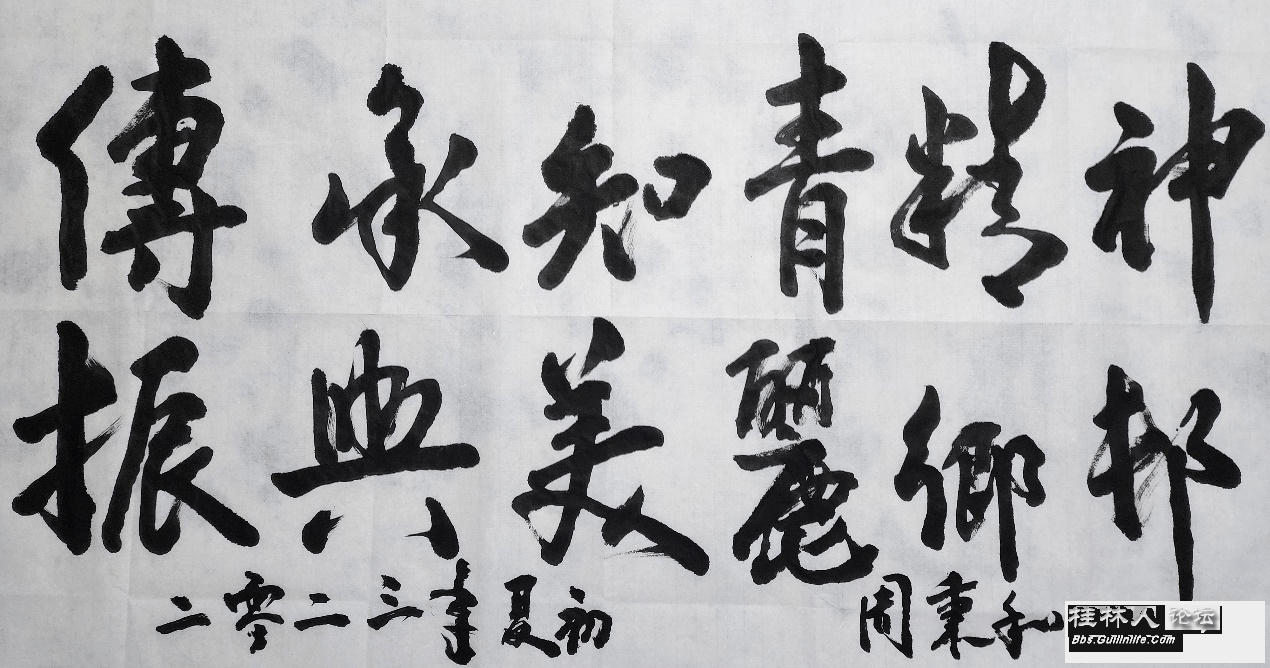 傳承知青精神
振興美麗鄉邨
二零二三年夏初 周秉和
桂林人论坛
Bbs.Guilinlife.com